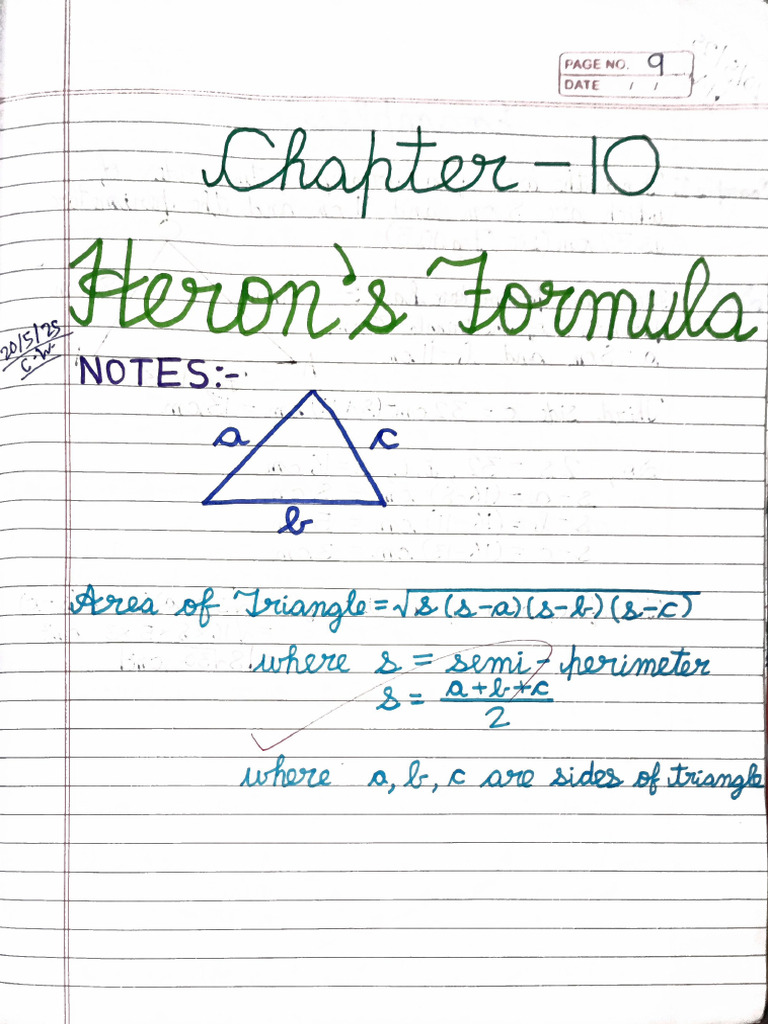 PAGE NO. 9
DATE / /
Chapter - 10
Heron's Formula
20/5/25
C.W.
NOTES:-
a
c
b
Area of Triangle = √s (s-a) (s-b) (s-c)
where s = semi - perimeter
s = a+b+c
2
where a, b, c are sides of triangle